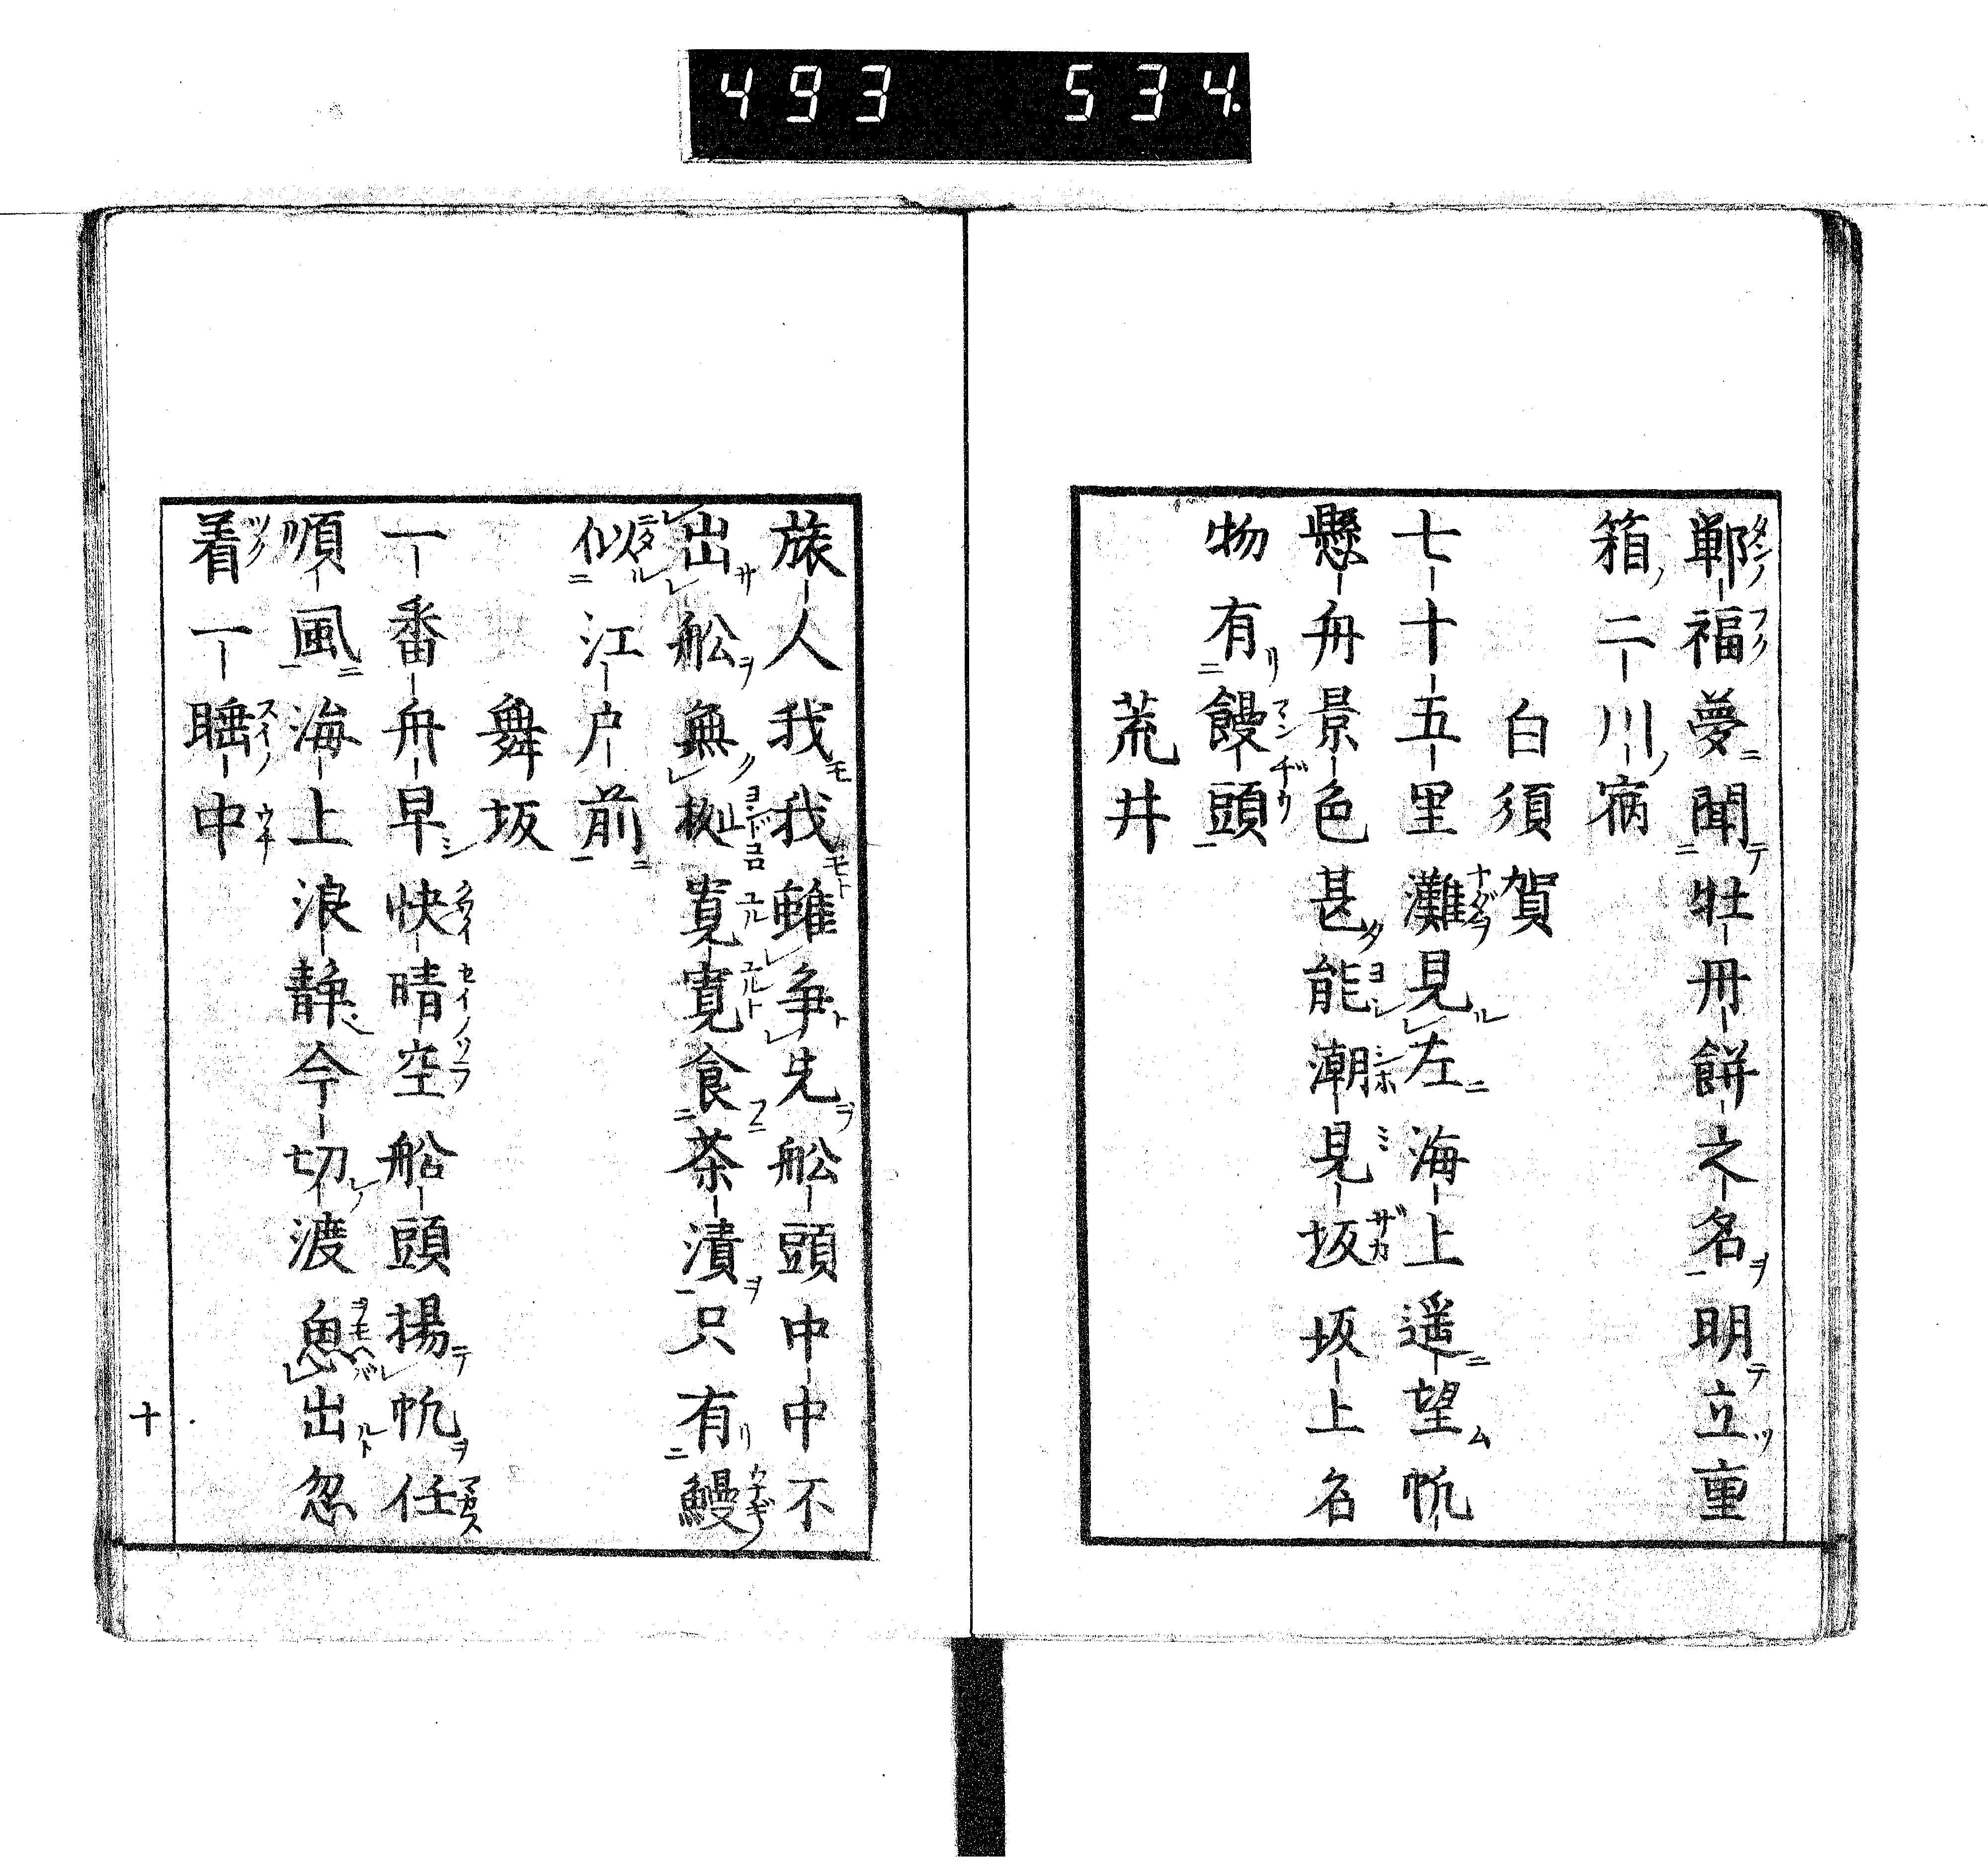 493 534.
鄲福夢聞牡丹餅之名明立重
箱二川病
白須賀
七十五里灘見左海上遥望帆
懸舟景色甚能潮見坂坂上名
物有饅頭
荒井
旅人我我雖争先舩頭中中不
出舩無拠寛寛食茶漬只有鰻
似江戸前
舞坂
一番舟早快晴空船頭揚帆任
順風海上浪静今切渡思出忽
着一睡中
十